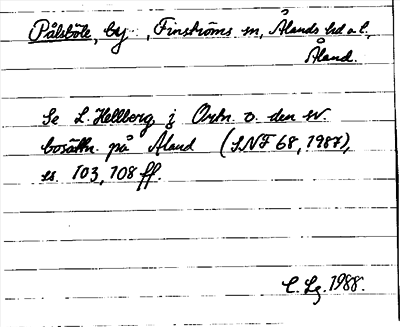 Pålsböle, by, Finströms sn, Ålands hd o. l.,
Åland.
Se L. Hellberg i Ortn. o. den sv.
bosättn. på Åland (SNF 68, 1987),
ss. 103, 108 ff.
1988.